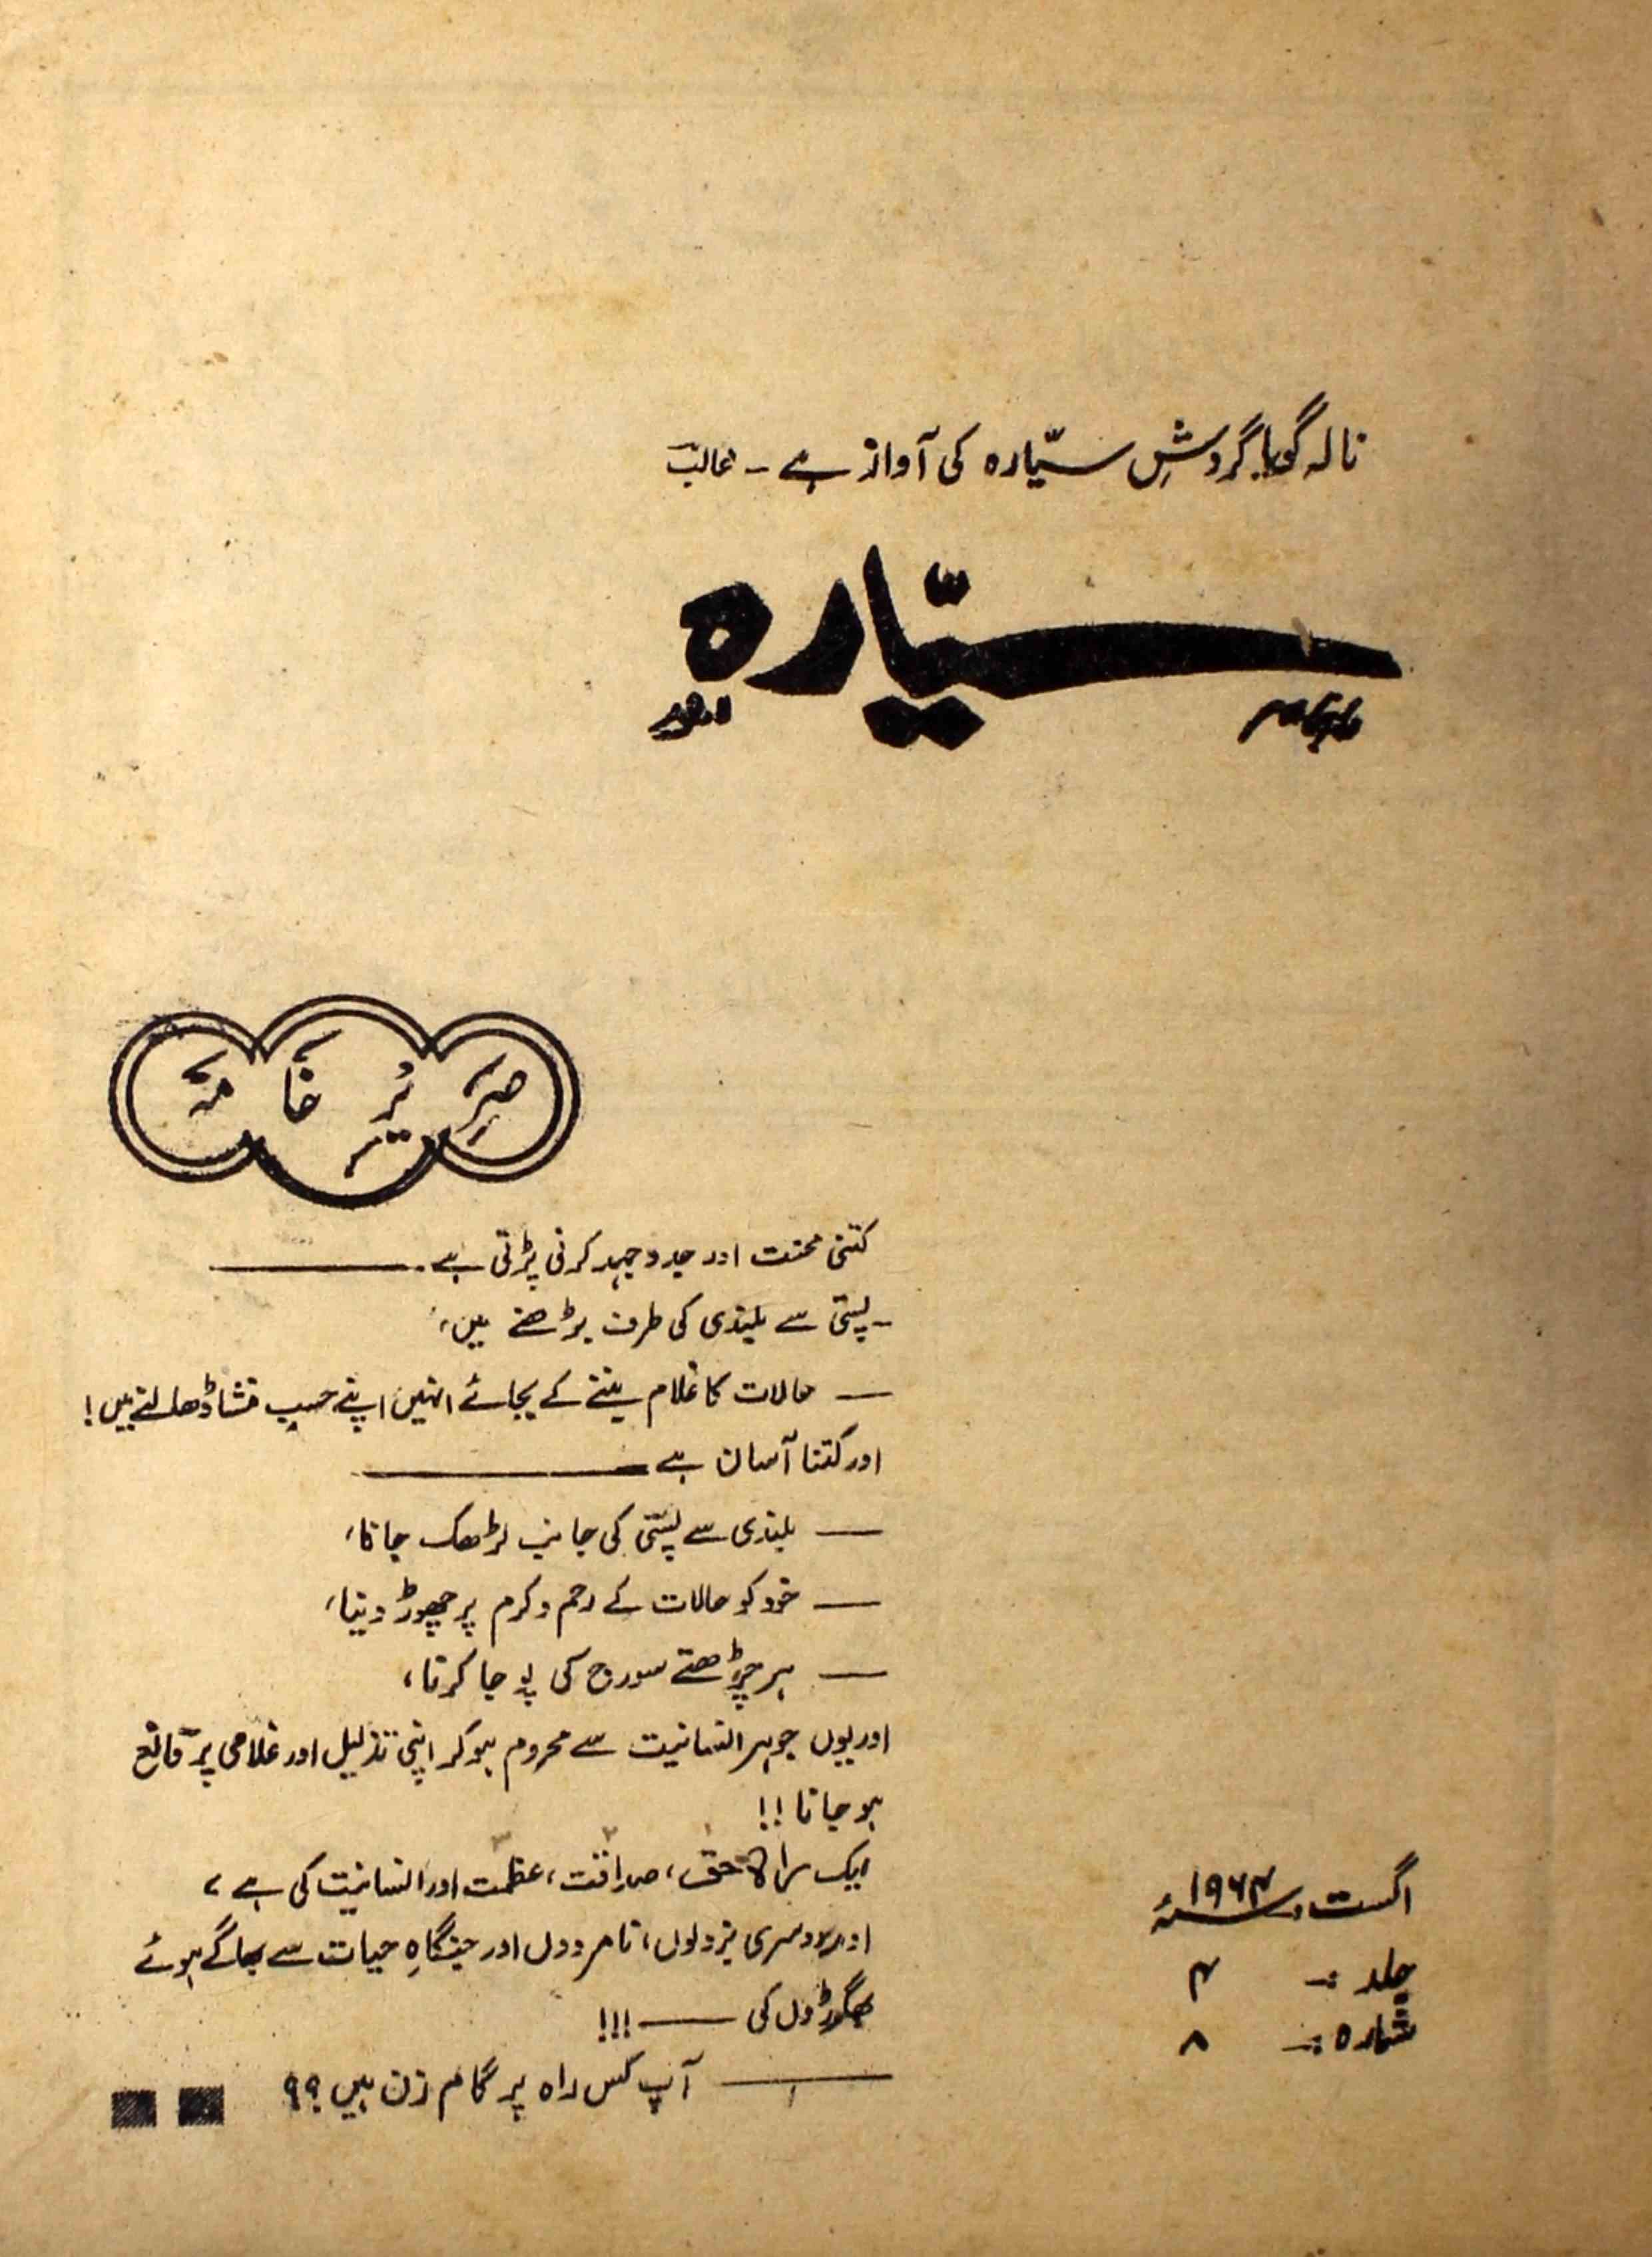 نالہ گویا گردشِ سیّارہ کی آواز ہے ۔ غالبؔ
سیّارہ
ماہنامہ لاہور
صَرِیْرِ خَامَہ
کتنی محنت اور جدوجہد کرنی پڑتی ہے۔ ———
— پستی سے بلندی کی طرف بڑھنے میں،
— حالات کا غلام بننے کے بجائے انہیں اپنے حسبِ منشا ڈھالنے میں!
اور کتنا آسان ہے ———
— بلندی سے پستی کی جانب لڑھک جانا،
— خود کو حالات کے رحم و کرم پر چھوڑ دینا،
— ہر چڑھتے سورج کی پوجا کرنا،
اور یوں جوہر انسانیت سے محروم ہو کر اپنی تذلیل اور غلامی پر قانع
ہو جانا !!
ایک راہ حق، صداقت، عظمت اور انسانیت کی ہے،
اور دوسری بزدلوں، نامردوں اور جنگاہِ حیات سے بھاگے ہوئے
بھگوڑوں کی —— !!!
——— آپ کس راہ پر گامزن ہیں ؟؟
اگست، ۱۹۶۴ء
جلد :۔ ۴
شمارہ :۔ ۸